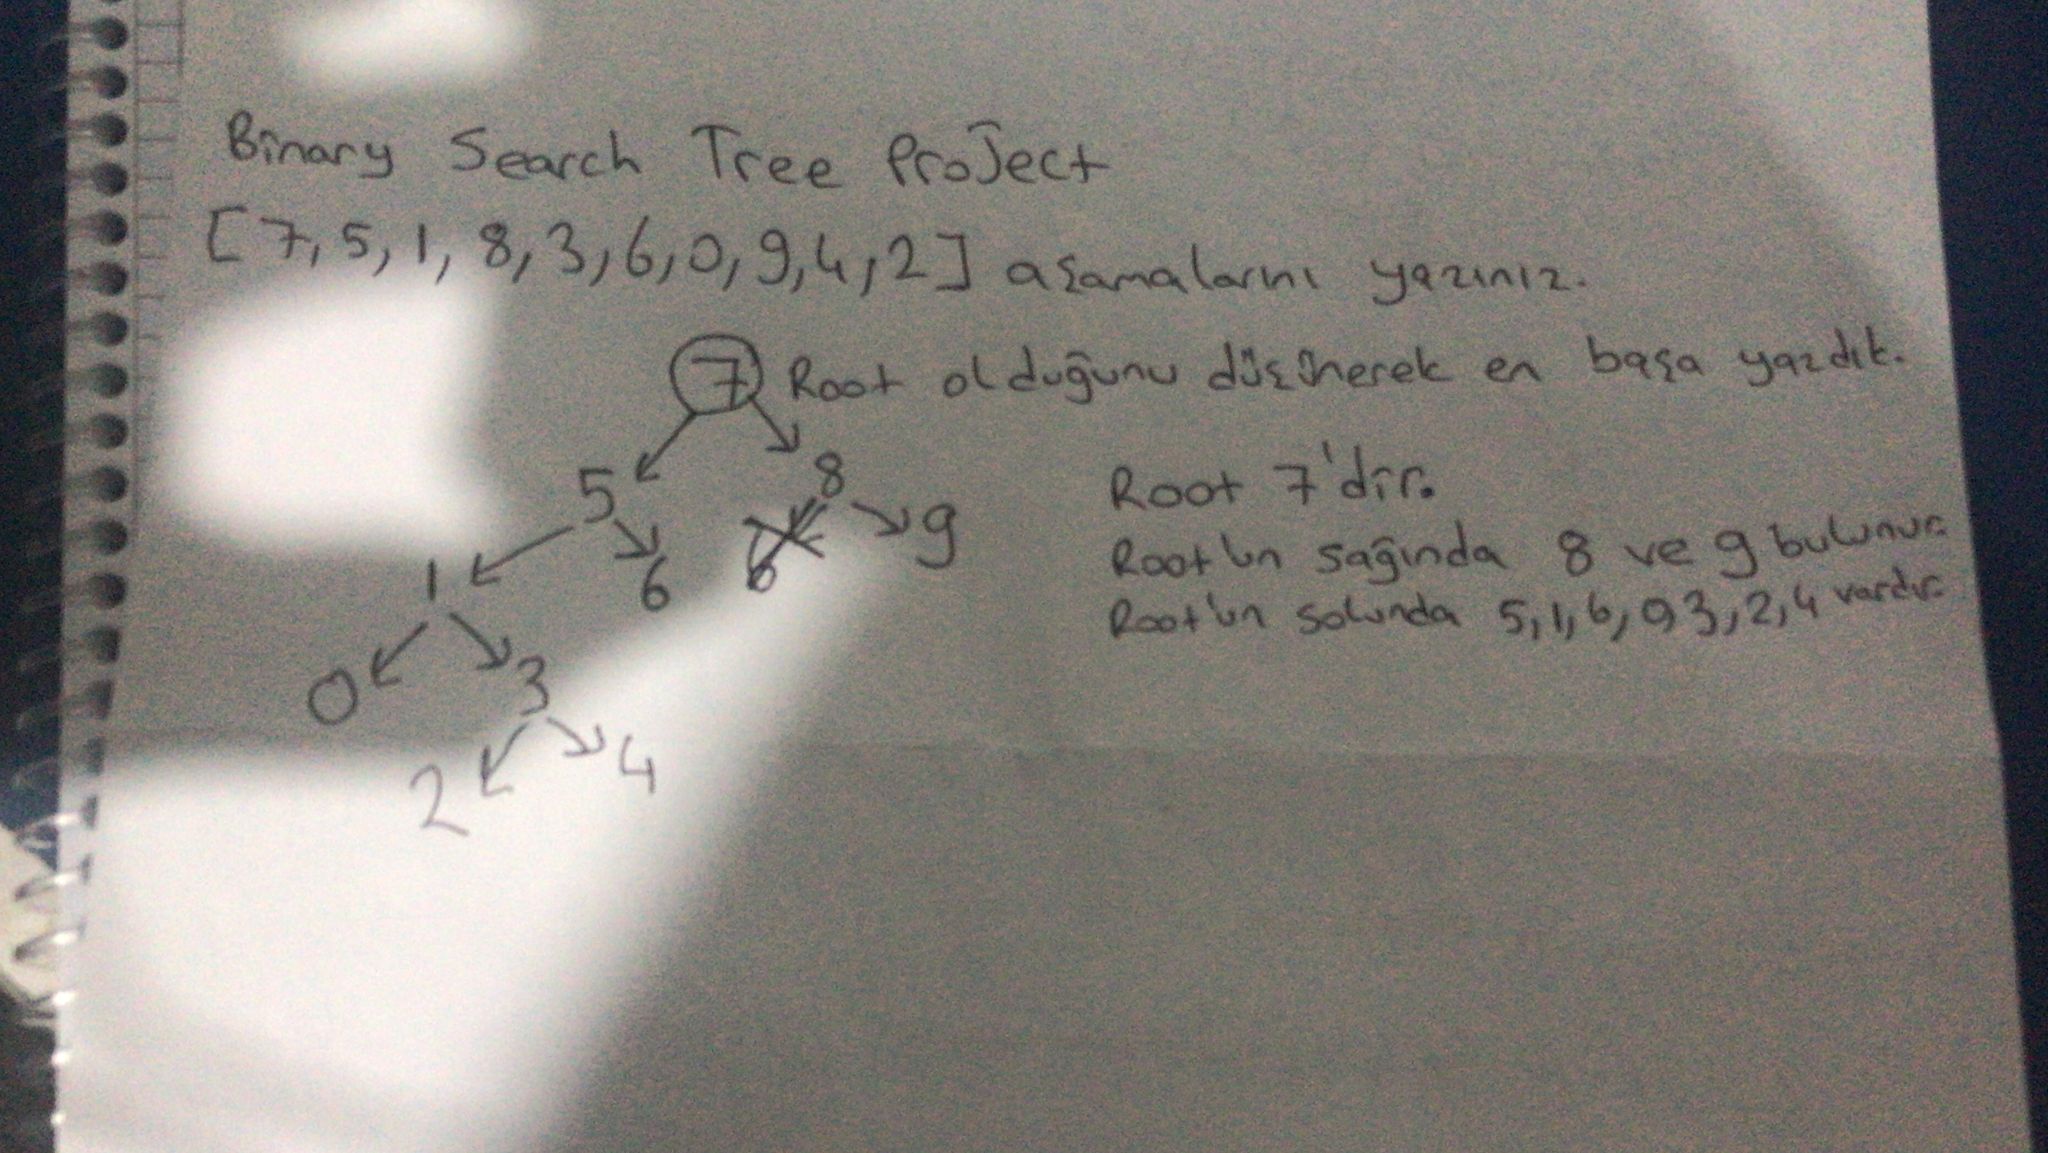 Binary Search Tree Project
[7,5,1,8,3,6,0,9,4,2] aşamalarını yazınız.
7 Root olduğunu düşünerek en başa yazdık.
5 8
6 9
1 6
0 3
2 4
Root 7'dir.
Root'un sağında 8 ve 9 bulunur.
Root'un solunda 5,1,6,0,3,2,4 vardır.